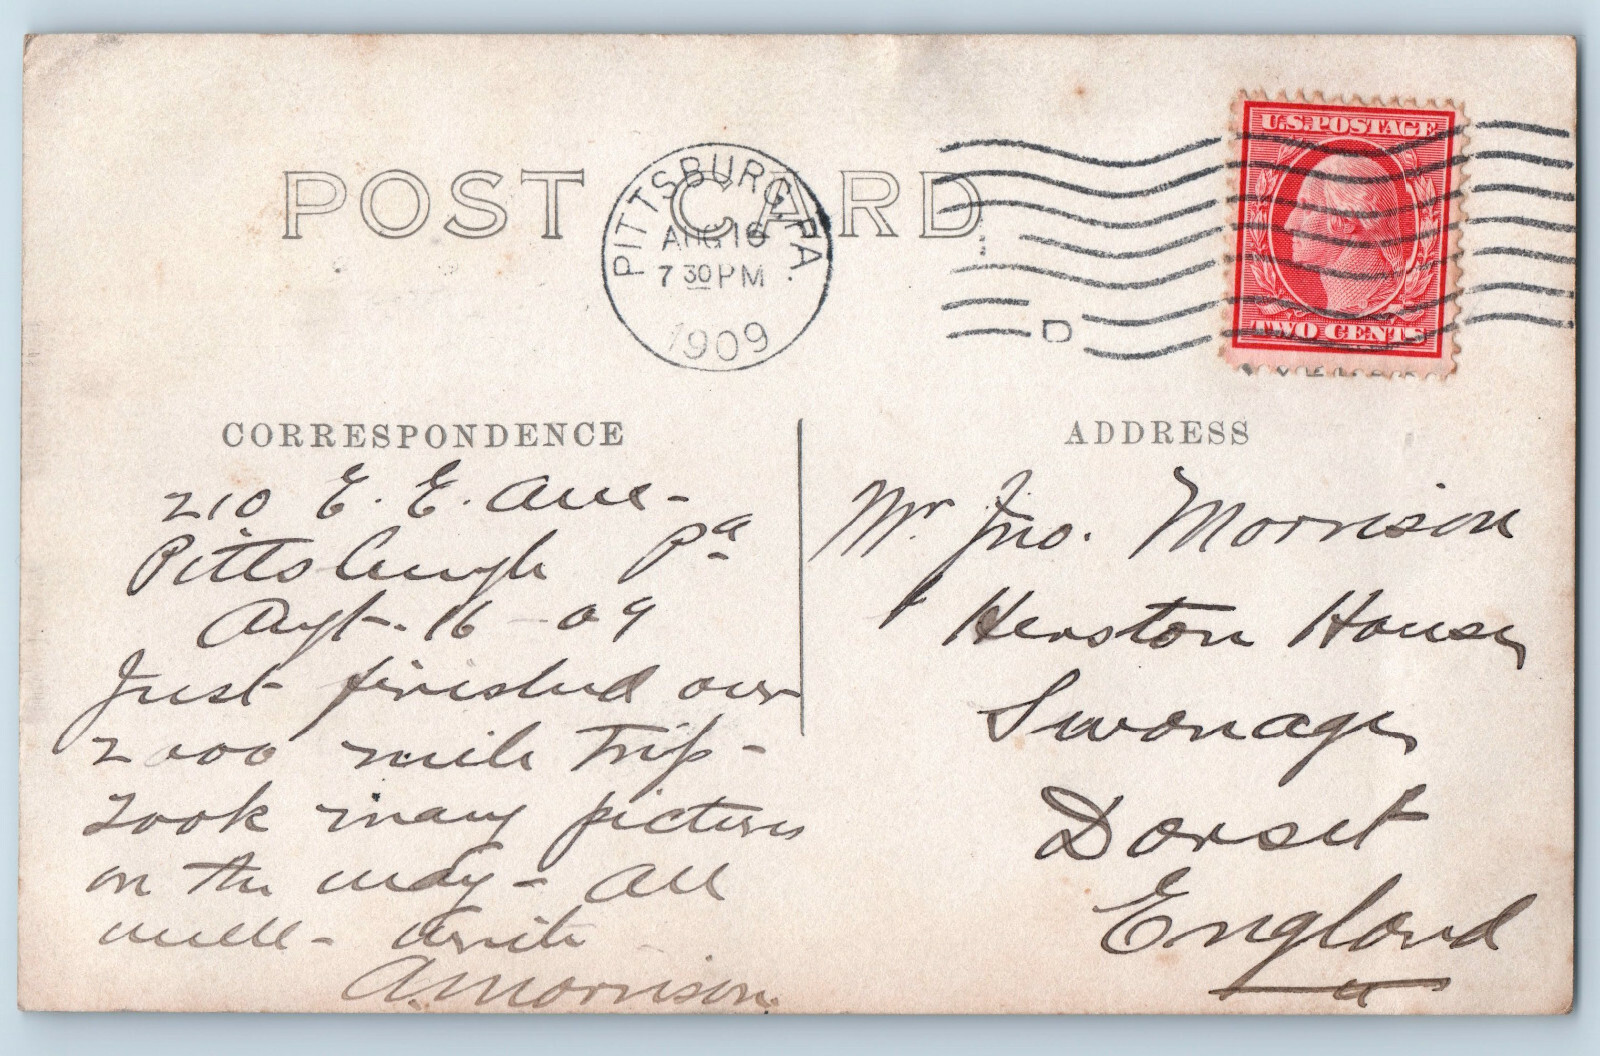 POST CARD
PITTSBURG, PA.
AUG 16
7 30 PM
1909
D
U.S. POSTAGE
TWO CENTS
CORRESPONDENCE
210 E. E. Ave-
Pittsburgh Pa
Augt. 16-09
Just finished our
2000 mile Trip-
Took many pictures
on the way- All
well- Write
A. Morrison.
ADDRESS
Mr. Jno. Morrison
Herston House,
Swanage,
Dorset
England